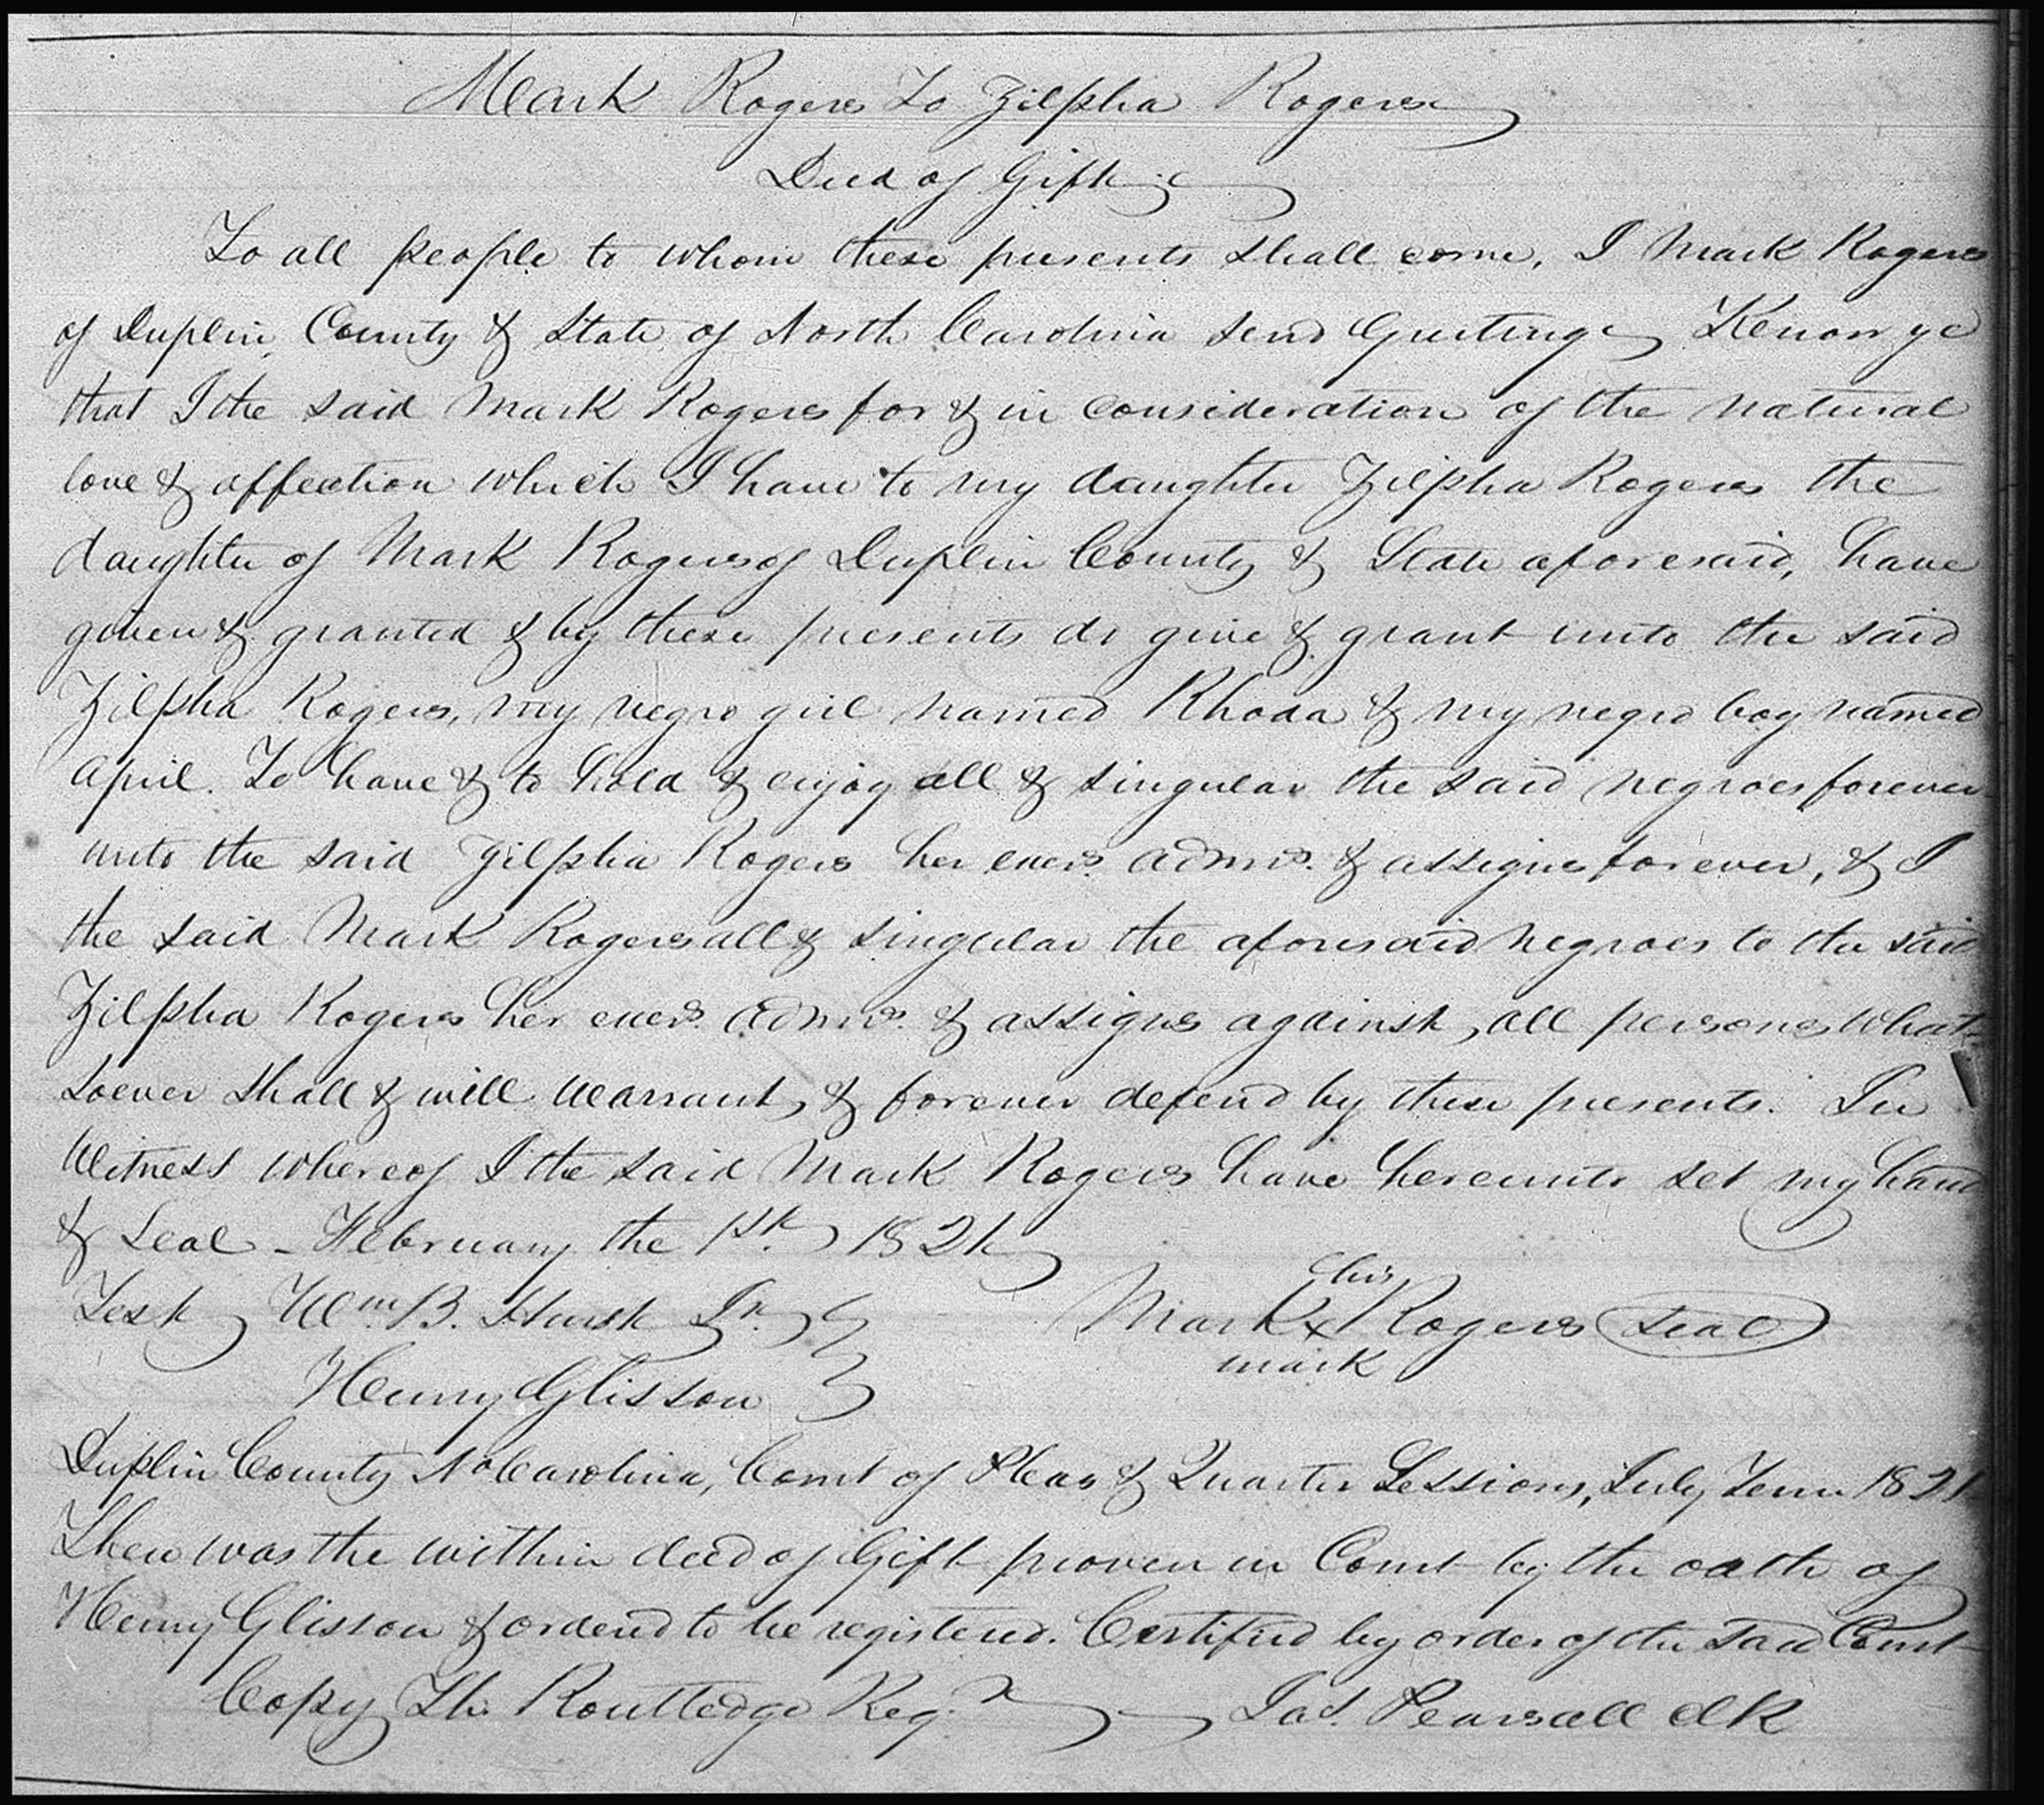 Mark Rogers To Zilpha Rogers
Deed of Gift
To all people to whom these presents shall come, I Mark Rogers
of Duplin County & State of North Carolina send Greeting Know ye
that I the said Mark Rogers for & in consideration of the natural
love & affection which I have to my daughter Zilpha Rogers the
daughter of Mark Rogers of Duplin County & State aforesaid, have
given & granted & by these presents do give & grant unto the said
Zilpha Rogers, my negro girl named Rhoda & my negro boy named
April. To have & to hold & enjoy all & singular the said negroes forever
unto the said Zilpha Rogers her exers. admrs. & assigns forever, & I
the said Mark Rogers all & singular the aforesaid negroes to the said
Zilpha Rogers her exers. admrs. & assigns against all persons what-
soever shall & will warrant & forever defend by these presents. In
Witness whereof I the said Mark Rogers have hereunto set my hand
& Seal - February the 1st. 1821
his
Test Wm. B. Hurst Jr. Mark x Rogers Seal
mark
Henry Glisson
Duplin County No Carolina, Court of Pleas & Quarter Sessions, July Term 1821
Then was the within deed of Gift proven in Court by the oath of
Henry Glisson & ordered to be registered. Certified by order of the said Court
Copy Th. Routledge Regr. Jas. Pearsall Clk